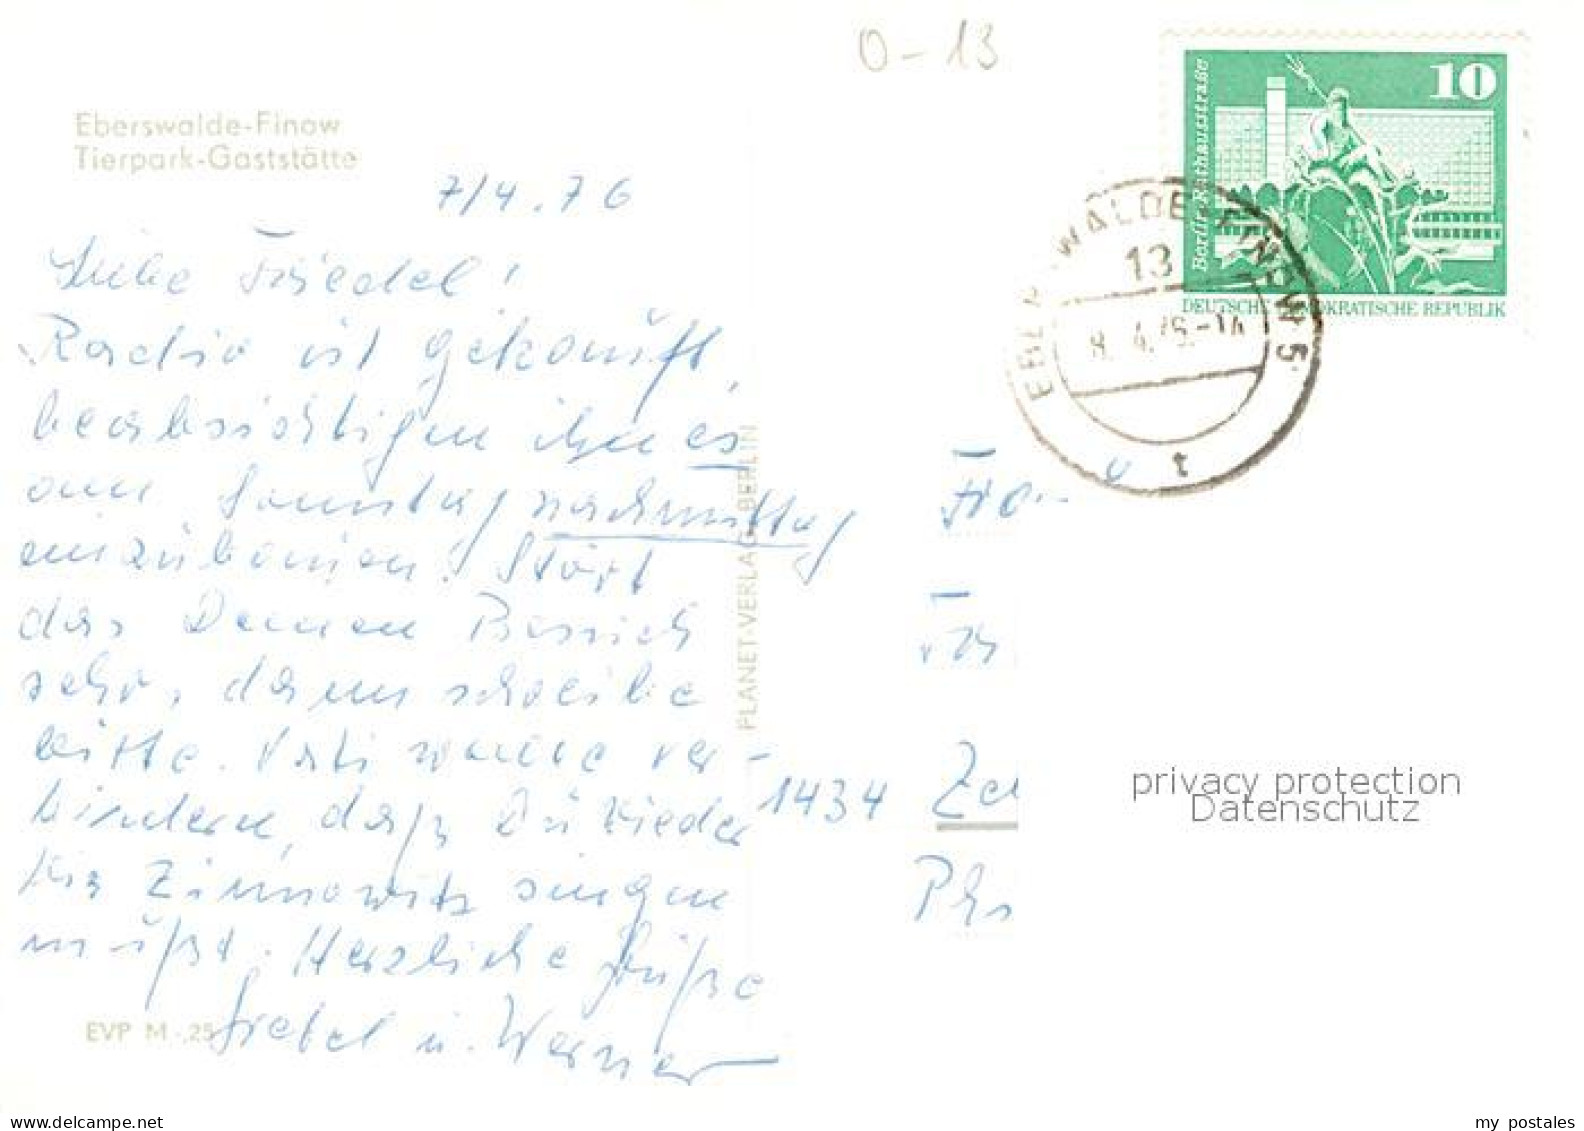 0-13
10
Berlin, Rathausstraße
DEUTSCHE DEMOKRATISCHE REPUBLIK
Eberswalde-Finow
Tierpark-Gaststätte
7/4.76
EBERSWALDE-FINOW 5
13
8. 4. 76.-14
t
Liebe Friedel!
Radio ist gekauft,
beabsichtigen ihn es
am Sonntag nachmittag
einzubauen. Stört
das Deinen Besuch
sehr, dann schreibe
bitte. Vati wollte ver-
hindern, daß Du wieder
bis Zinnowitz singen
mußt. Herzliche Grüße
Gretel u. Werner
EVP M -,25
PLANET-VERLAG BERLIN
1434
privacy protection
Datenschutz
my postales